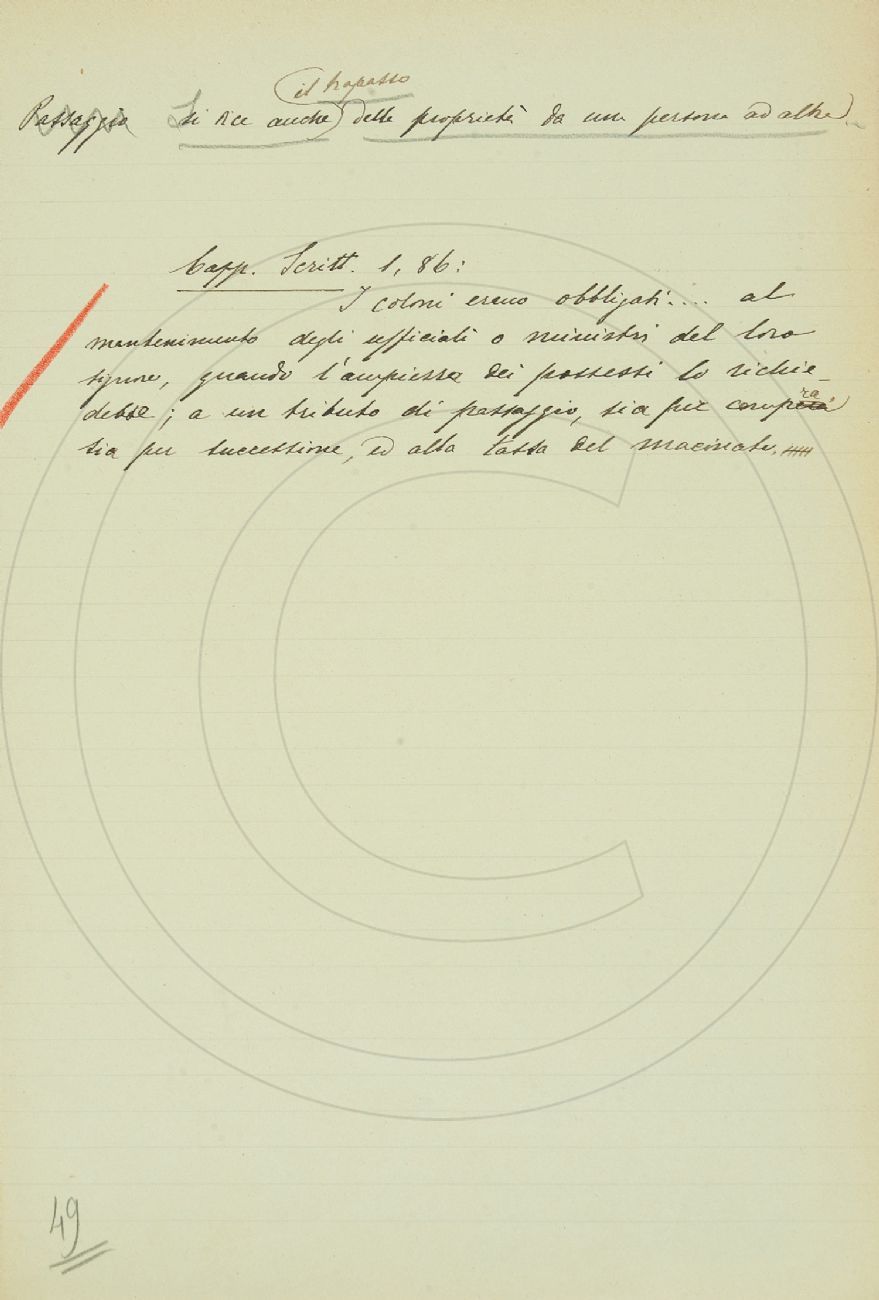 il trapasso
Passaggio Si dice anche delle proprietà da una persona ad altra.
Capp. Scritt. 1, 86:
I coloni erano obbligati.... al
mantenimento degli ufficiali o ministri del loro
signore, quando l'ampiezza dei possessi lo richie-
desse; a un tributo di passaggio, sia per compera
sia per successione, ed alla tassa del macinato.
49